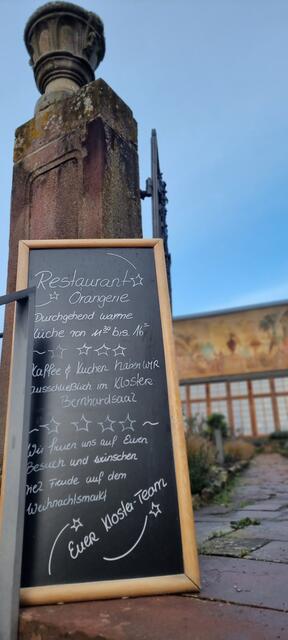 Restaurant
Orangerie
Durchgehend warme
Küche von 11³⁰ bis 16°°
Kaffee & Kuchen haben WIR
ausschließlich im Kloster
Bernhardsaal
Wir freuen uns auf Euren
Besuch und wünschen
viel Freude auf dem
Weihnachtsmarkt
Euer Kloster-Team